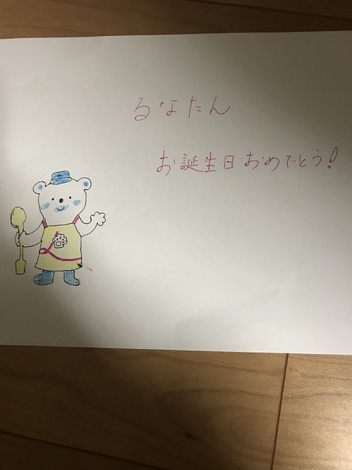 るなたん
お誕生日おめでとう!